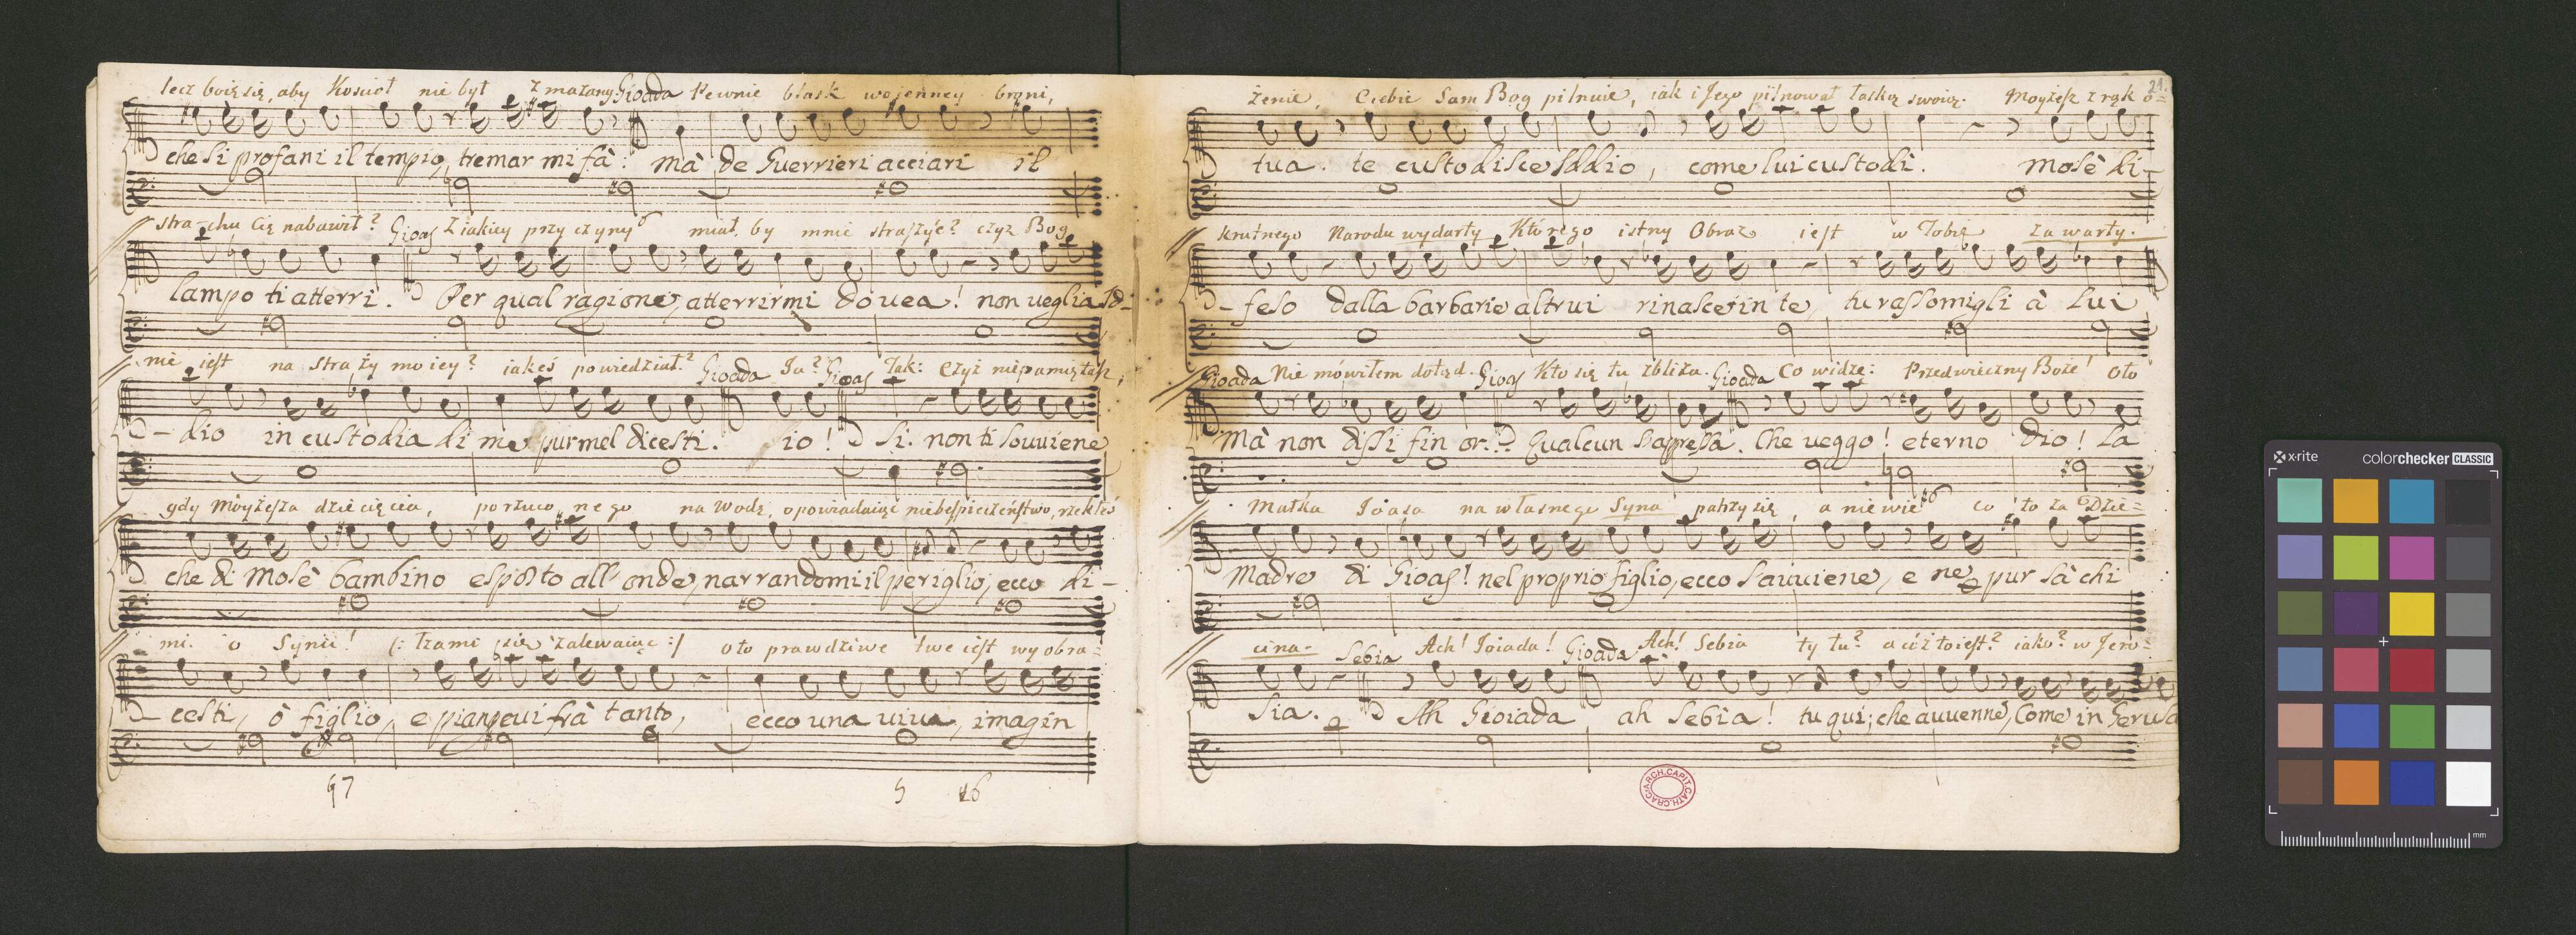 lecz boię się, aby Koscioł nie był zmazany. Gioada Pewnie blask wojenney broni,
che si profani il tempio, tremar mi fà: mà de Guerrieri acciari il
strachu Cię nabawił? Gioas Z iakiey przyczyny miał by mnie straszyć? czyz Bog
lampo ti atterri. Per qual ragione, atterrirmi dovea! non veglia Id-
nie iest na straży moiey? iakeś powiedział? Gioada Ja? Gioas Tak: Czyż niepamiętasz,
-dio in custodia di me pur mel dicesti. io! Si. non ti souuiene
gdy Moyżesza dziecięcia, porzuconego na wodę, opowiadaiąc niebespieczeństwo, rzekłeś
che di Mosè bambino esposto all' onde, narrandomi il periglio, ecco di-
mi. o Synu! (: łzami się zalewaiąc :) oto prawdziwe twe iest wyobra-
-cesti, ò figlio, e piangeui frà tanto, ecco una uiua, imagin
57 5 26
21.
żenie, Ciebie Sam Bog pilnuie, iak i Jego pilnował łaską swoią. Moyżesz z rąk o=
tua. te custodisce Iddio, come lui custodì. Mosè di-
krutnego Narodu wydarty Którego istny Obraz iest w Tobie zawarty.
-feso dalla barbarie altrui rinasce in te, tu rassomigli à Lui
Gioada Nie mówiłem dotąd. Gioas Kto się tu zbliża. Gioada Co widzę: Przedwieczny Boże! Oto
Mà non dissi fin or. Qualcun s'appressa. Che ueggo! eterno Dio! Là
Matka Joasa na własnego Syna patrzy się, a nie wie co to za Dzie=
Madre di Gioas! nel proprio figlio, ecco s'auuiene, e ne pur sà chi
cina. Sebia Ach! Joiada! Gioada Ach! Sebia ty tu? a cóż to iest? iako? w Jero=
Sia. Ah Gioiada ah Sebia! tu qui; che auuenne, Come in Gerusa
ARCH. CAPIT. CATH. CRAC.
x-rite colorchecker CLASSIC
mm